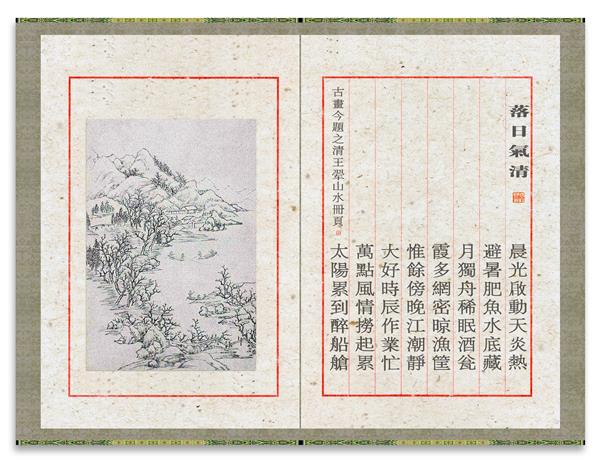 落日氣清
晨光啟動天炎熱
避暑肥魚水底藏
月獨舟稀眠酒瓮
霞多網密晾漁筐
惟餘傍晚江潮靜
大好時辰作業忙
萬點風情撈起累
太陽累到醉船艙
古畫今題之清王翬山水冊頁